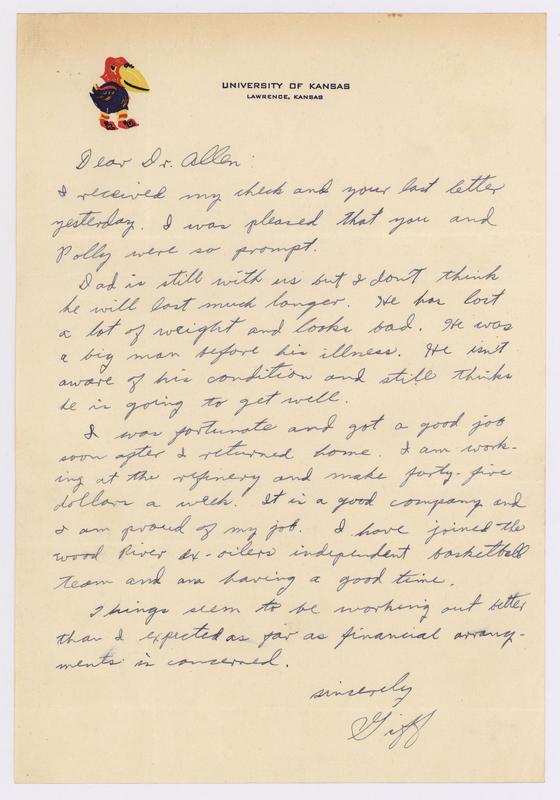 UNIVERSITY OF KANSAS
LAWRENCE, KANSAS
Dear Dr. Allen:
I received my check and your last letter
yesterday. I was pleased that you and
Polly were so prompt.
Dad is still with us but I don't think
he will last much longer. He has lost
a lot of weight and looks bad. He was
a big man before his illness. He isn't
aware of his condition and still thinks
he is going to get well.
I was fortunate and got a good job
soon after I returned home. I am work-
ing at the refinery and make forty-five
dollars a week. It is a good company and
I am proud of my job. I have joined the
Wood River ex-oilers independent basketball
team and am having a good time.
Things seem to be working out better
than I expected as far as financial arrang-
ments is concerned.
sincerely
Giff